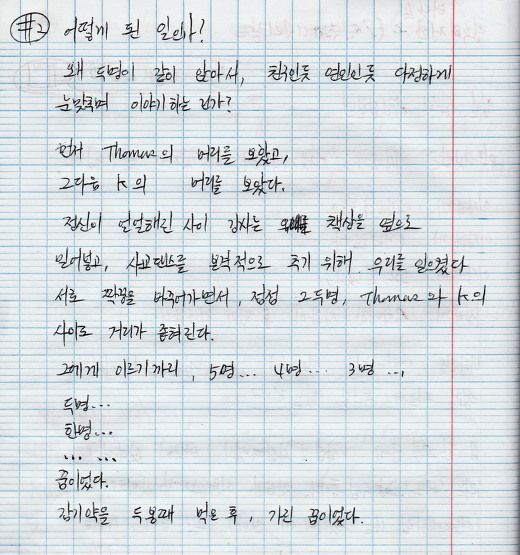 #2 어떻게 된 일일까?
왜 두명이 같이 앉아서, 친구인듯 연인인듯 다정하게
눈맞추며 이야기하는 건가?
먼저 Thomas의 머리를 보았고,
그다음 K의 머리를 보았다.
정신이 얼얼해진 사이 강사는 책상을 옆으로
밀어놓고, 사교댄스를 본격적으로 추기 위해 우리를 일으켰다
서로 짝꿍을 바꾸어가면서, 점점 그두명, Thomas와 K의
사이로 거리가 좁혀진다.
그에게 이르기까지, 5명... 4명... 3명...,
두명...
한명...
... ...
꿈이었다.
감기약을 두봉째 먹은 후, 가진 꿈이었다.